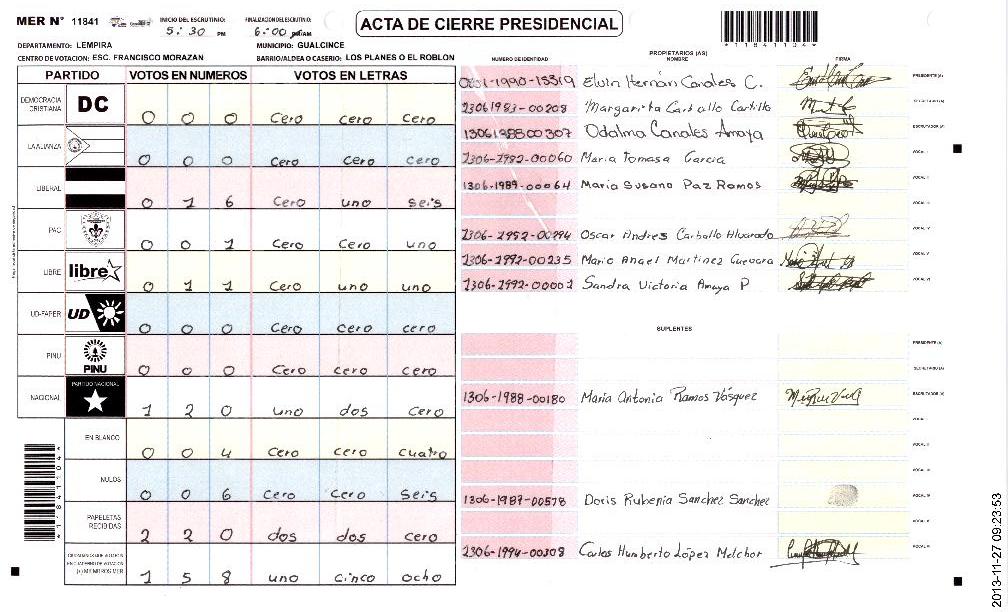 MER N° 11841
INICIO DEL ESCRUTINIO:
5:30 PM
FINALIZACION DEL ESCRUTINIO:
6:00
ACTA DE CIERRE PRESIDENCIAL
*11841104*
DEPARTAMENTO: LEMPIRA
MUNICIPIO: GUALCINCE
CENTRO DE VOTACION: ESC. FRANCISCO MORAZAN
BARRIO/ALDEA O CASERIO: LOS PLANES O EL ROBLON
PARTIDO VOTOS EN NUMEROS VOTOS EN LETRAS
DEMOCRACIA CRISTIANA DC 0 0 0 Cero cero cero
LA ALIANZA 0 0 0 Cero Cero cero
LIBERAL 0 1 6 Cero uno seis
PAC 0 0 1 Cero Cero uno
LIBRE libre 0 1 1 Cero uno uno
UD-FAPER UD 0 0 0 Cero Cero cero
PINU PINU 0 0 0 Cero cero cero
NACIONAL PARTIDO NACIONAL 1 2 0 uno dos Cero
EN BLANCO 0 0 4 Cero cero cuatro
NULOS 0 0 6 Cero Cero seis
PAPELETAS RECIBIDAS 2 2 0 dos dos cero
CIUDADANOS QUE VOTARON EN CUADERNO DE VOTACION (+) MIEMBROS MER 1 5 8 uno cinco ocho
*11841104*
NUMERO DE IDENTIDAD
PROPIETARIOS (AS)
NOMBRE
FIRMA
Elvin Hernán Canales C. PRESIDENTE (A)
Margarita Carballo SECRETARIO (A)
1306198800307 Odalma Canales Amaya ESCRUTADOR (A)
1306-1982-00060 Maria Tomasa Garcia VOCAL I
1306-1989-00064 Maria Susana Paz Ramos VOCAL II
VOCAL III
Oscar Andres Carballo Alvarado VOCAL IV
1306-1992-00235 Mario Angel Martinez Guevara VOCAL V
1306-1992-00002 Sandra Victoria Amaya P VOCAL VI
SUPLENTES
PRESIDENTE (A)
SECRETARIO (A)
1306-1988-00180 Maria Antonia Ramos Vásquez ESCRUTADOR (A)
VOCAL I
VOCAL II
VOCAL III
1306-1987-00578 Doris Rubenia Sanchez Sanchez VOCAL IV
VOCAL V
1306-1994-00308 Carlos Humberto López Melchor VOCAL VI
2013-11-27 09:23:53